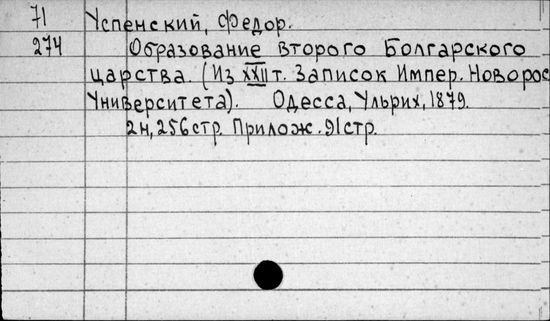 71 Успенский, Федор.
274 Образование второго Болгарского
царства. (Из XXII т. Записок Импер. Новорос
Университета). Одесса, Ульрих, 1879.
2н, 256 стр. Прилож. 91 стр.